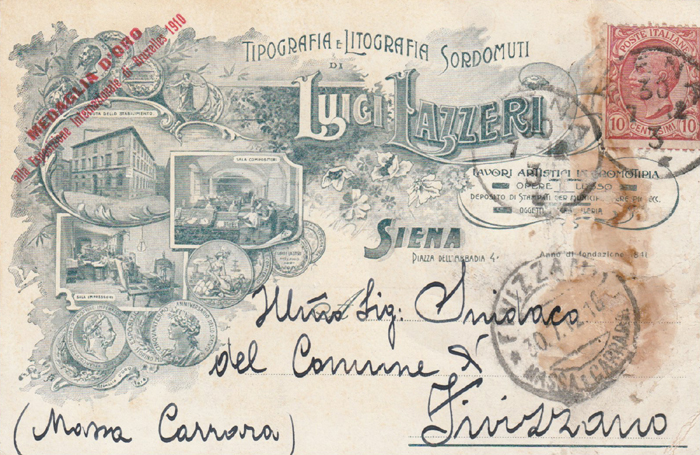 MEDAGLIA D'ORO
all'Esposizione Internazionale di Bruxelles 1910
TIPOGRAFIA E LITOGRAFIA SORDOMUTI
DI
LUIGI LAZZERI
VEDUTA DELLO STABILIMENTO
SALA COMPOSITORI
SALA IMPRESSIONI
LAVORI ARTISTICI IN CROMOTIPIA
OPERE DI LUSSO
DEPOSITO DI STAMPATI PER MUNICIPI
OGGETTI
SIENA
PIAZZA DELL'ABBADIA 4
Anno di fondazione
POSTE ITALIANE
10 CENTESIMI 10
SIENA
30
FIVIZZANO
30.7.12.16
MASSA E CARRARA
Illmo Sig: Sindaco
del Comune di
Fivizzano
(Massa Carrara)